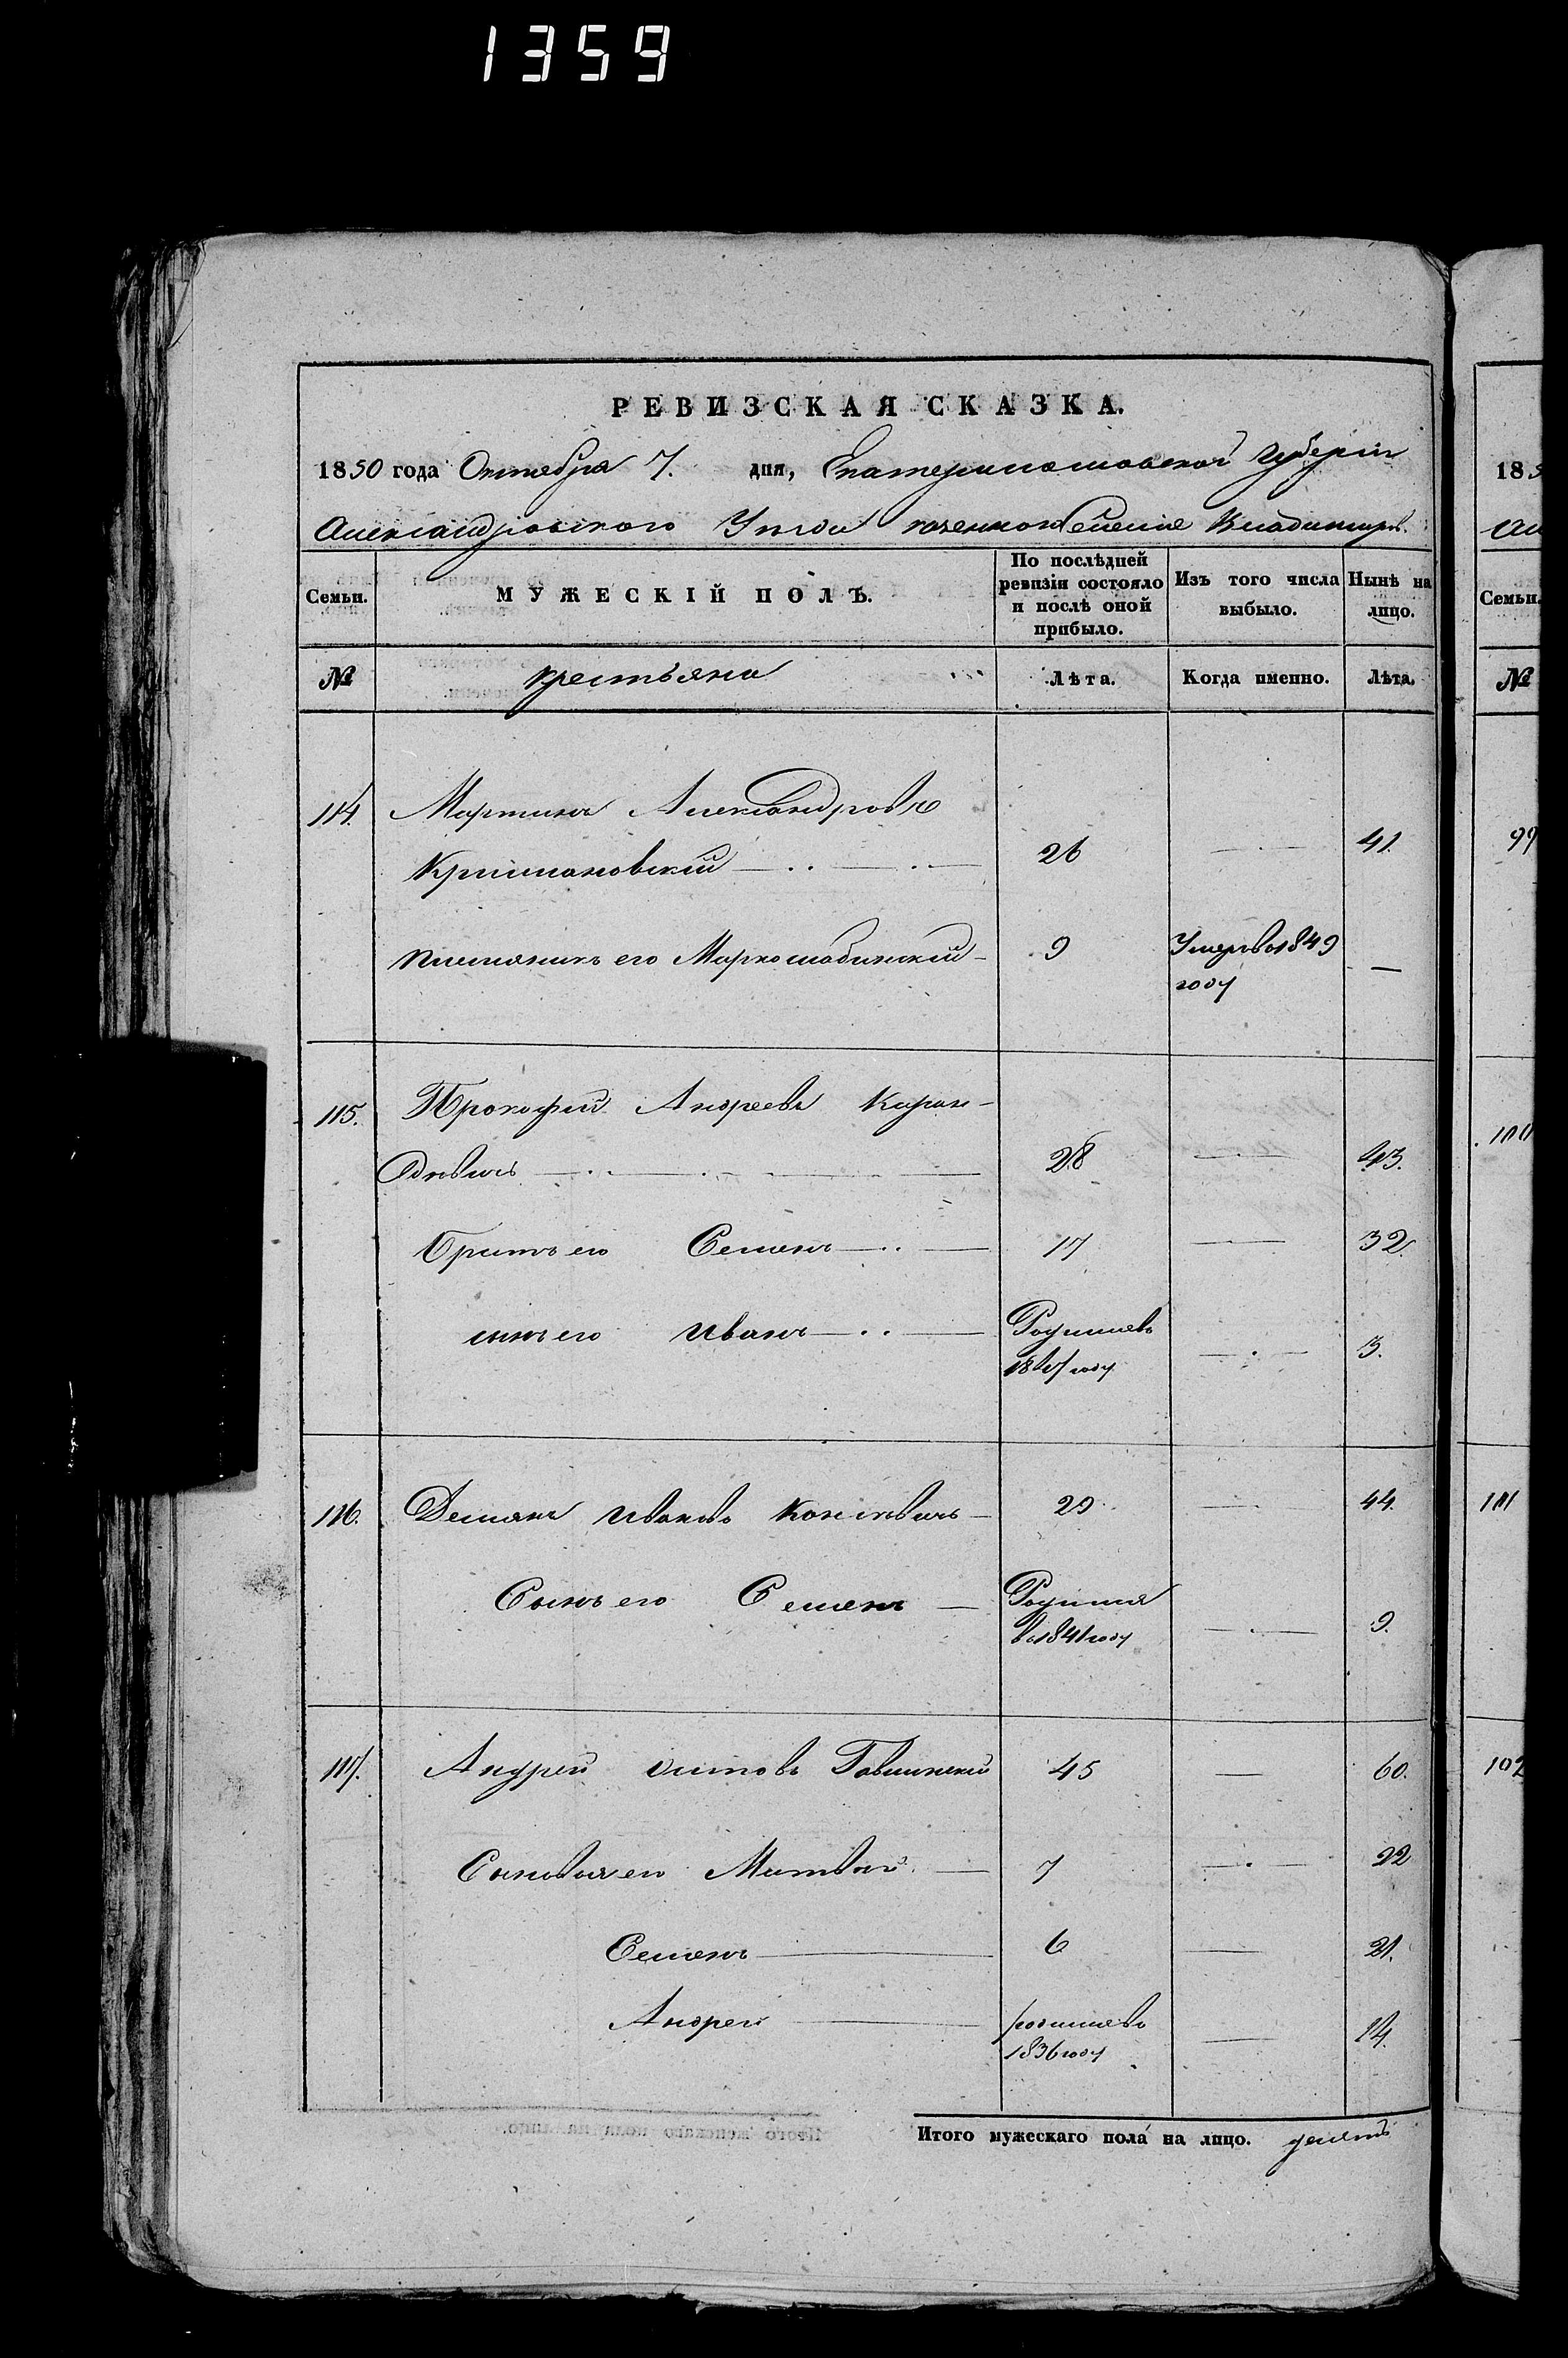 1359
РЕВИЗСКАЯ СКАЗКА.
1850 года Октября 7. дня, Екатеринославской Губерніи
Александровского Уезда казенное селение
Семьи. МУЖЕСКІЙ ПОЛЪ. По послѣдней ревизіи состояло и послѣ оной прибыло. Изъ того числа выбыло. Нынѣ на лицо.
№ крестьяне Лѣта. Когда именно. Лѣта.
114. Мартинъ Александровъ
Кришановскій 26 41.
племяникъ его Марко 9 Умеръ во 1849 —
году
115. Прокофий Андреевъ Каран-
28 43.
Братъ его Семенъ 17 32.
сынъ его Иванъ Родился въ 3.
1847 году
116. Демянъ Ивановъ 29 44.
Сынъ его Семенъ Родился 9.
во 1841 году
117. Андрей Осиповъ 45 60.
Сыновья его Матвей 7 22
Семенъ 6 21.
Андрей родился въ 14.
1836 году
Итого мужескаго пола на лицо. девять
185
Семьи.
№
99
100
101
102